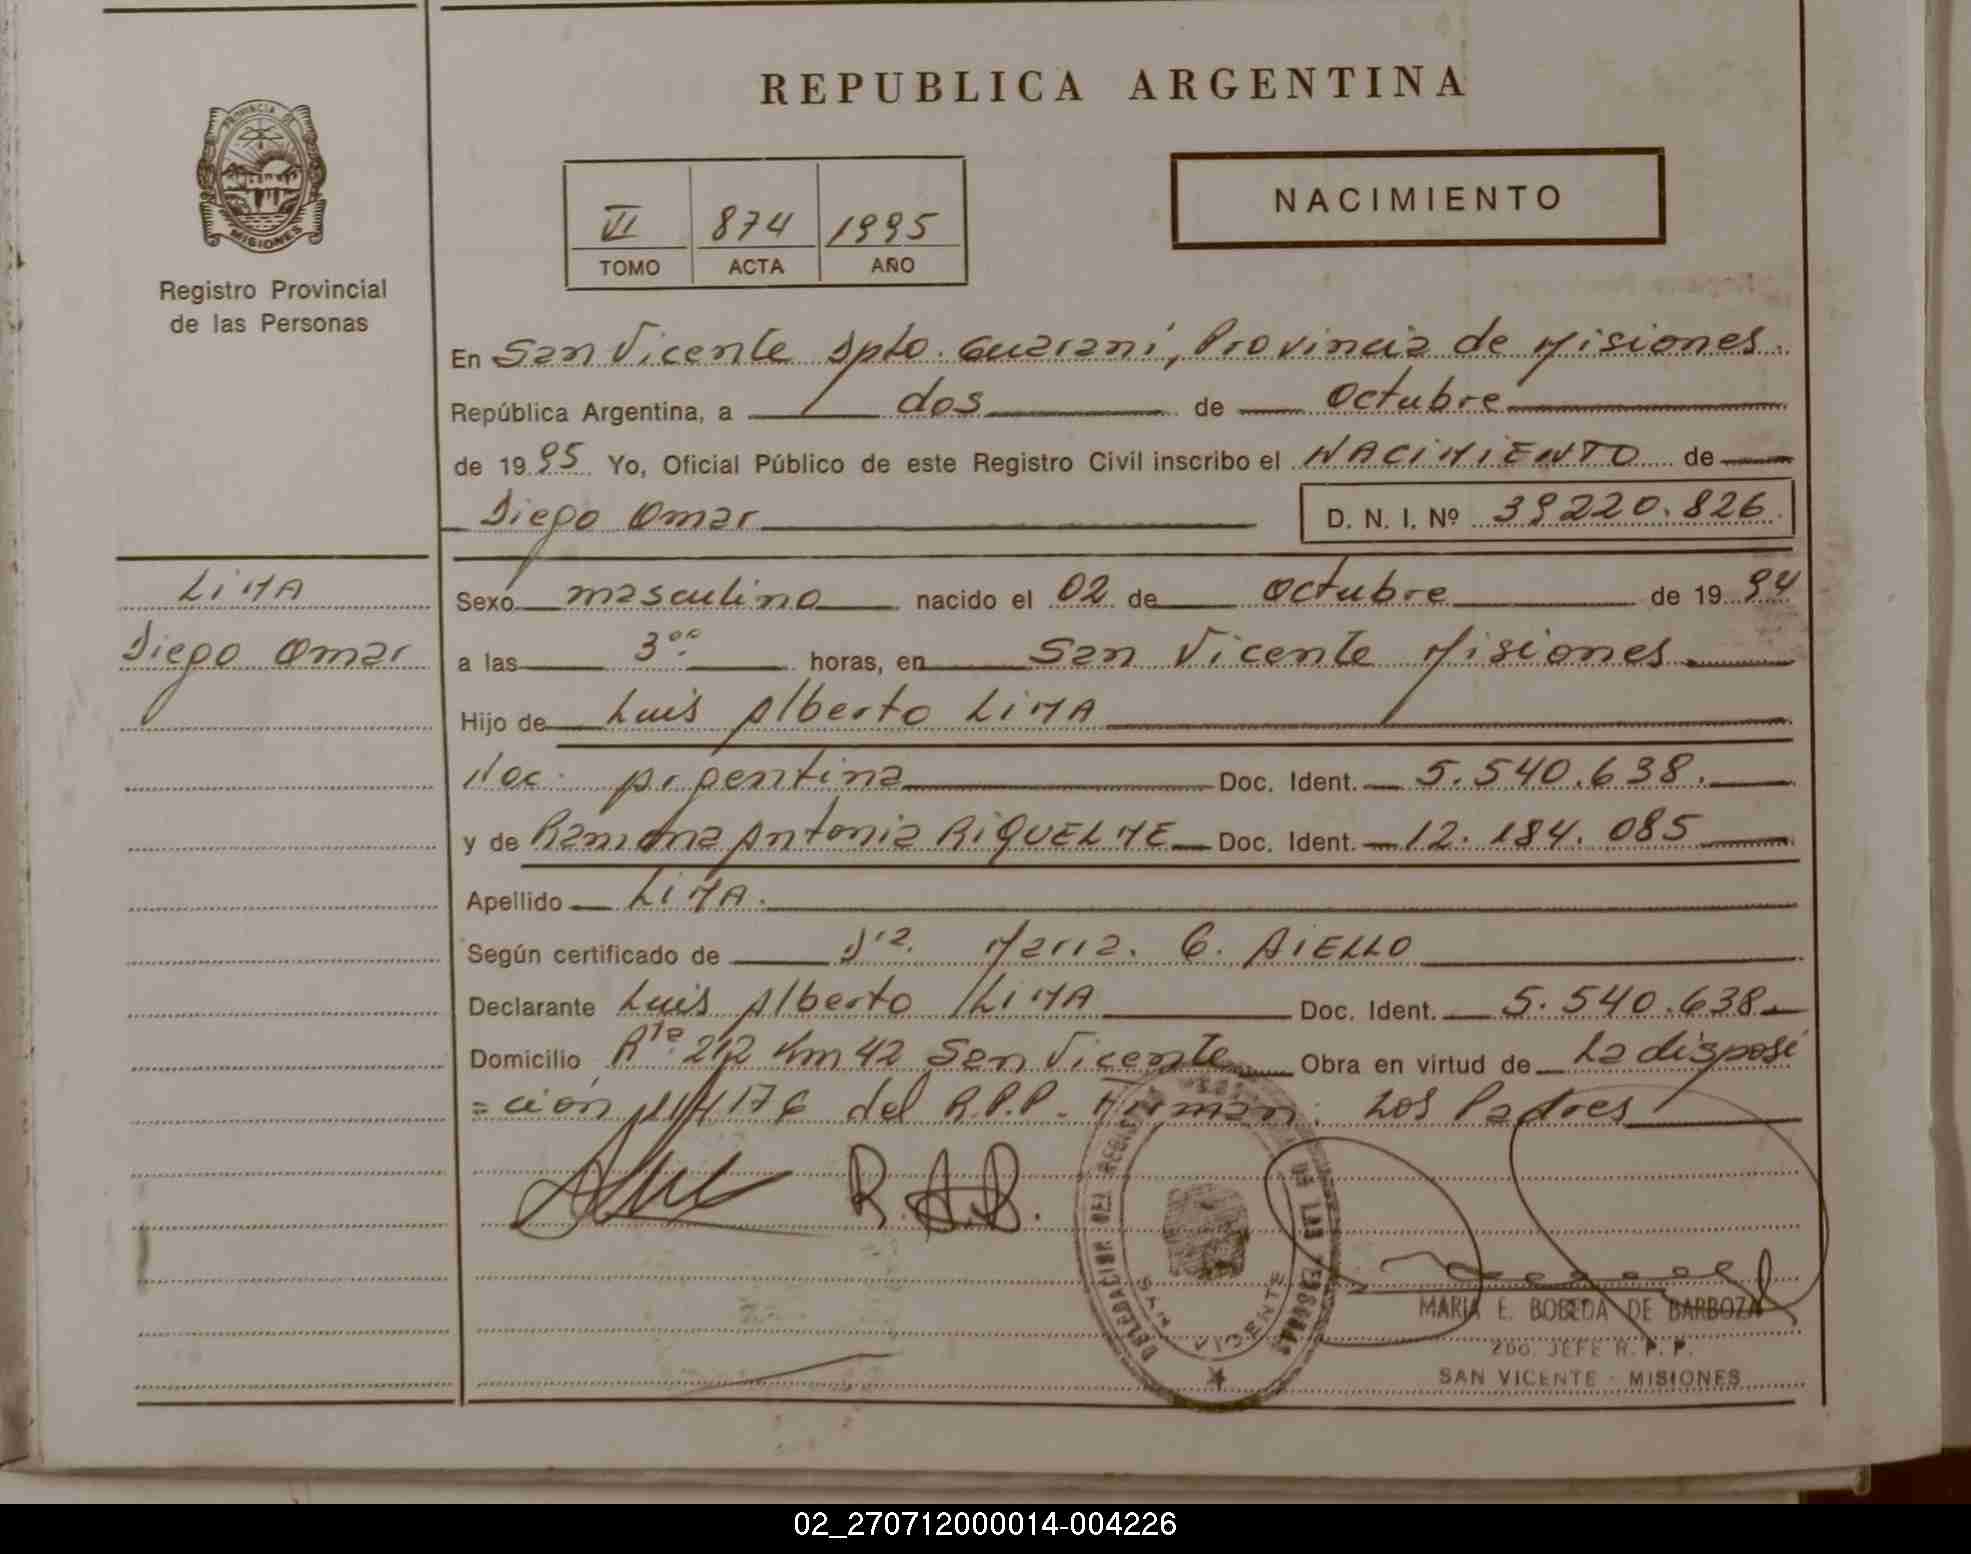 REPUBLICA ARGENTINA
PROVINCIA DE
MISIONES
Registro Provincial
de las Personas
VI 874 1995
TOMO ACTA AÑO
NACIMIENTO
En San Vicente Dpto. Guaraní, Provincia de Misiones.
República Argentina, a dos de Octubre
de 1995 Yo, Oficial Público de este Registro Civil inscribo el NACIMIENTO de
Diego Omar D. N. I. Nº 39220.826
LIMA
Diego Omar
Sexo masculino nacido el 02 de Octubre de 1994
a las 3ºº horas, en San Vicente Misiones
Hijo de Luis Alberto LIMA
Nac. Argentina Doc. Ident. 5.540.638.
y de Ramona Antonia RIQUELME Doc. Ident. 12.184.085
Apellido LIMA.
Según certificado de Dra. Maria. G. AIELLO
Declarante Luis Alberto LIMA Doc. Ident. 5.540.638
Domicilio Rta. 212 Km 42 San Vicente Obra en virtud de La disposi
=ción del R.P.P. Firman: Los Padres
R. A. R.
DELEGACION DEL REGISTRO DE LAS PERSONAS
SAN VICENTE
MARIA E. BOBEDA DE BARBOZA
2DO. JEFE R. P. P.
SAN VICENTE - MISIONES
02_270712000014-004226